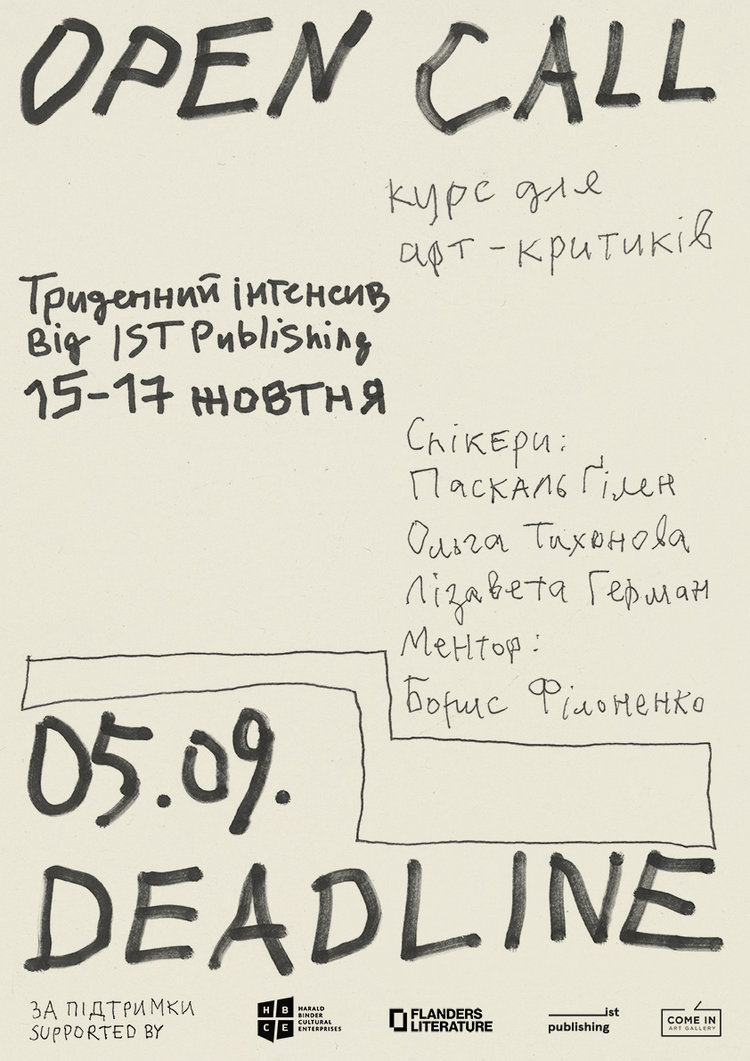 OPEN CALL
курс для
арт-критиків
Триденний інтенсив
від IST Publishing
15-17 жовтня
Спікери:
Паскаль Ґілен
Ольга Тихонова
Лізавета Герман
Ментор:
Борис Філоненко
05.09.
DEADLINE
ЗА ПІДТРИМКИ
SUPPORTED BY
HBCE
HARALD
BINDER
CULTURAL
ENTERPRISES
FLANDERS
LITERATURE
ist
publishing
COME IN
ART GALLERY